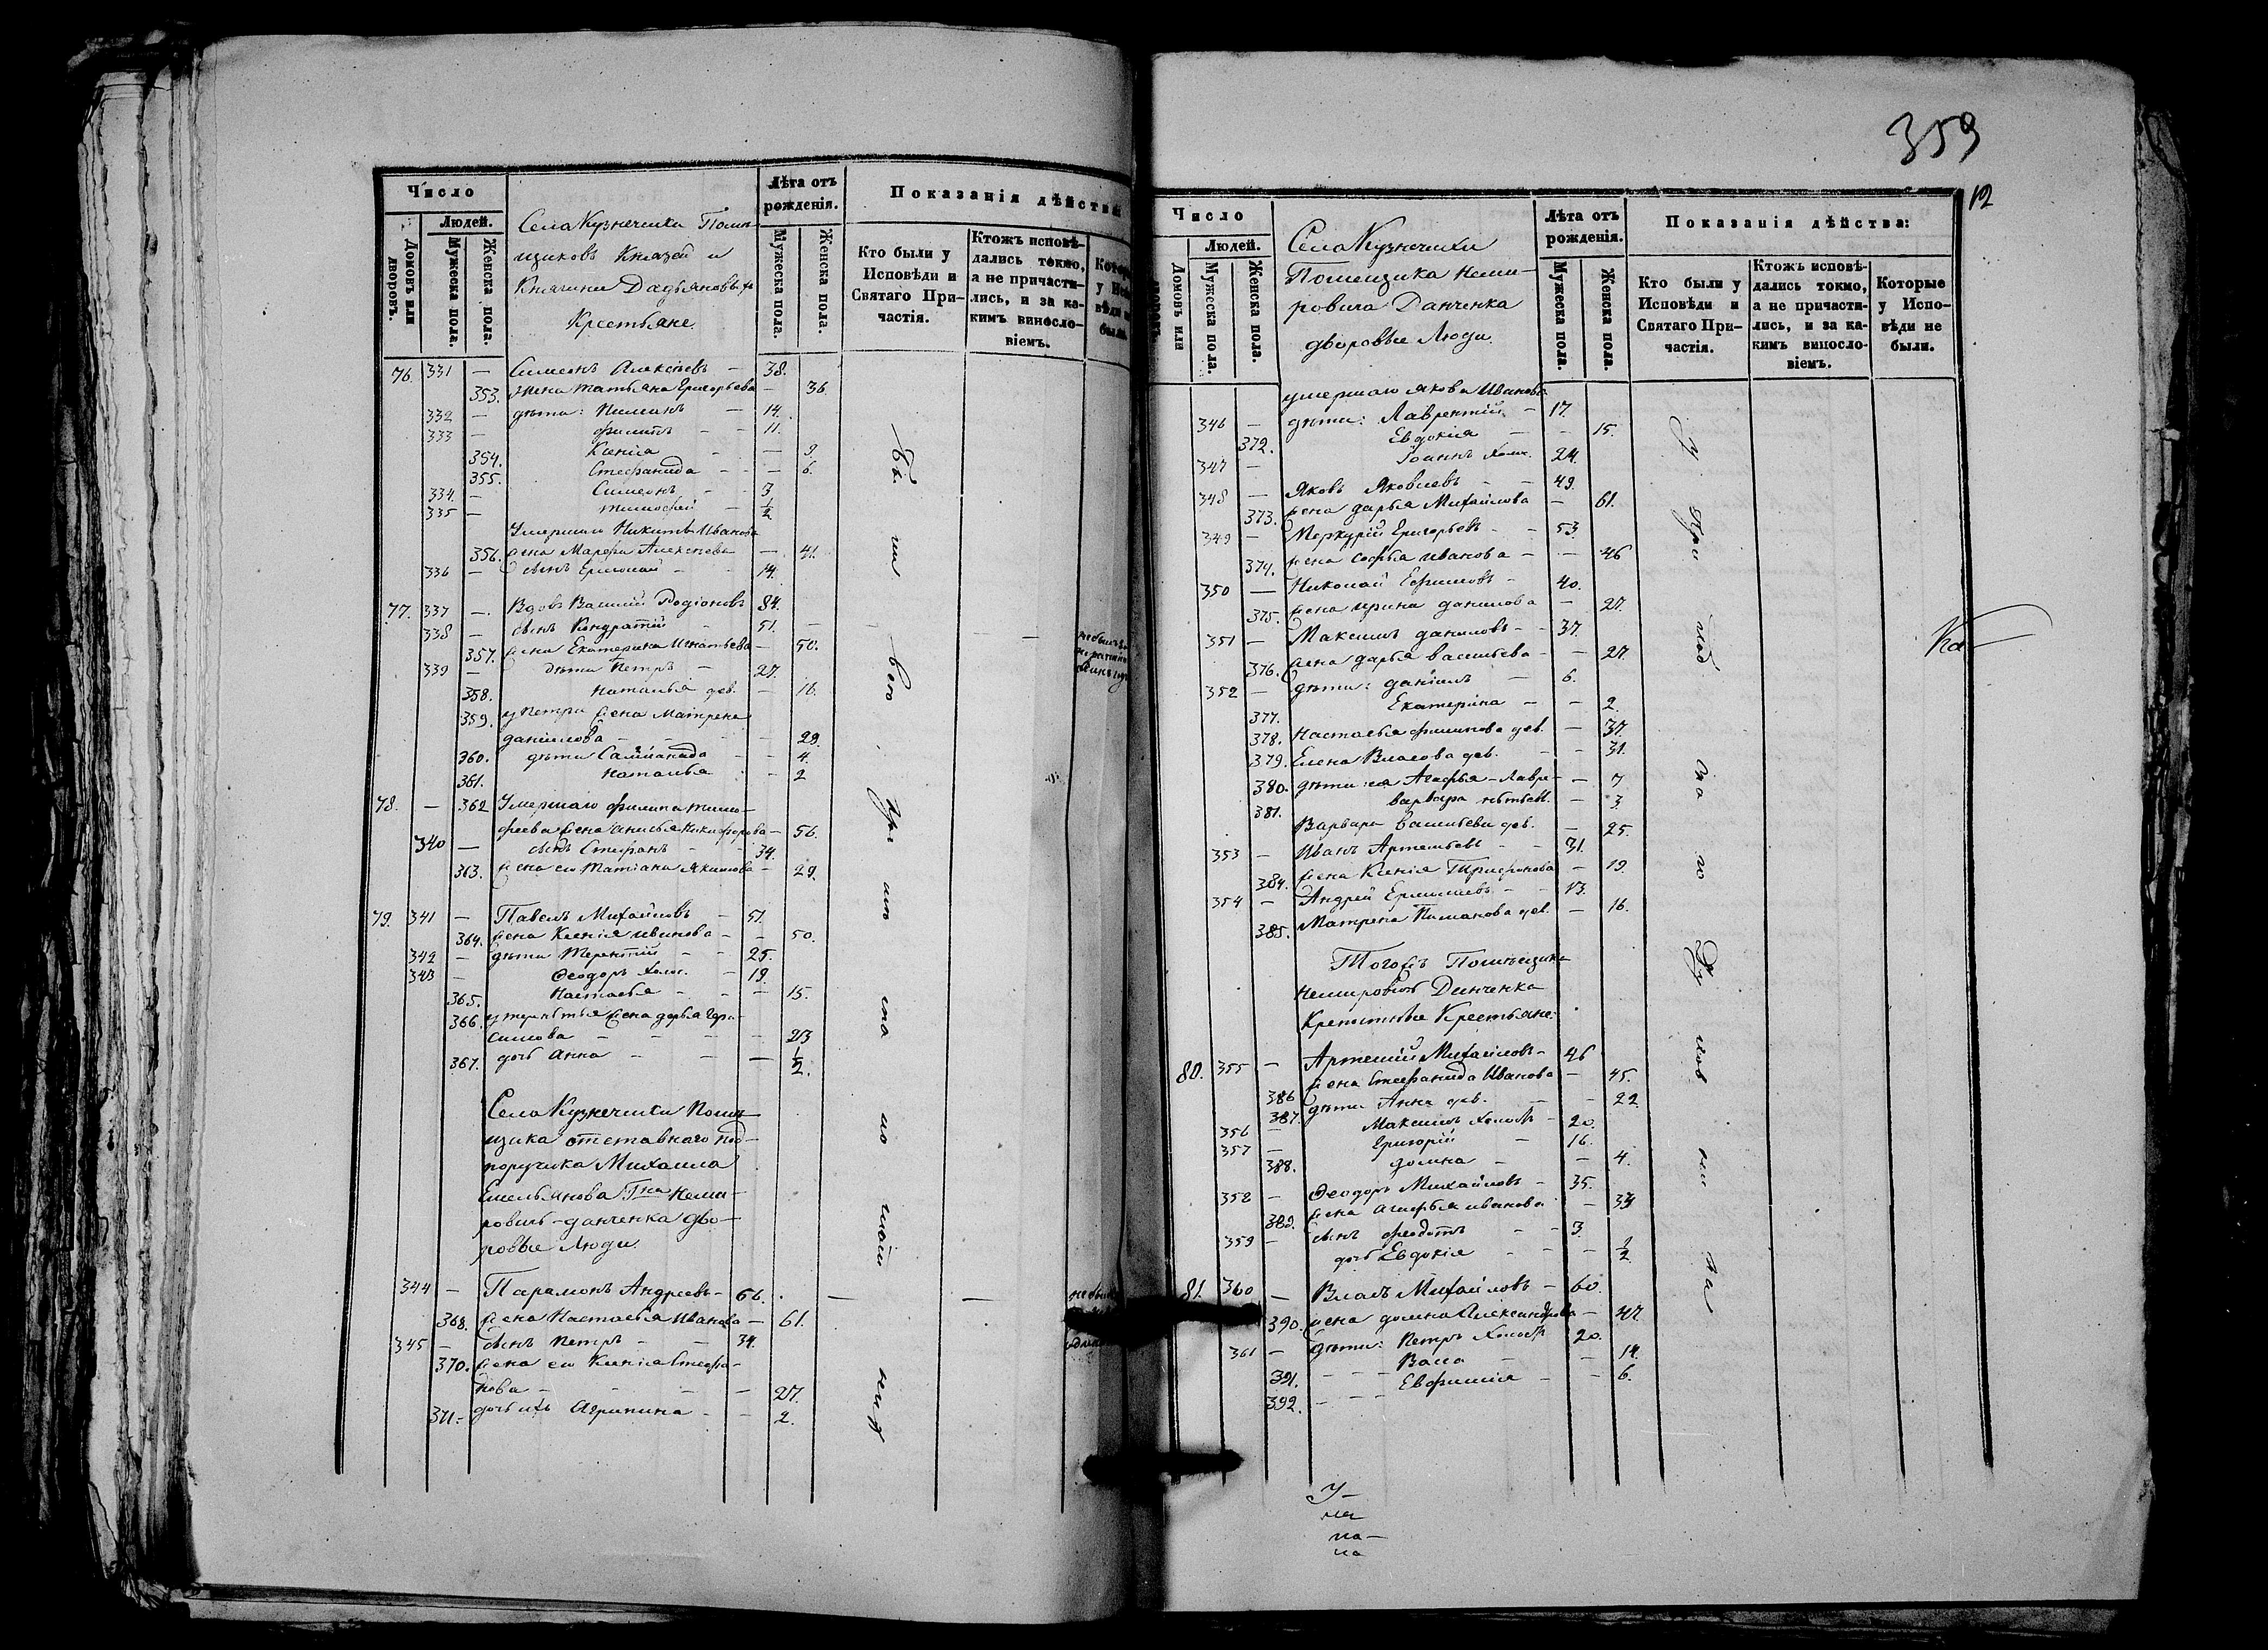 Число
Людей.
Домовъ или дворовъ.
Мужеска пола.
Женска пола.
Села Кузнечихи Помѣ-
щиковъ Князей и
Княгини Дадьяновыхъ
Крестьяне.
Лѣта отъ рожденія.
Мужеска пола.
Женска пола.
Показанія дѣйства
Кто были у Исповѣди и Святаго При-частія.
Ктожъ исповѣ-дались токмо, а не причасти-лись, и за ка-кимъ виносло-віемъ.
76. 331 — Симеонъ Алексѣевъ — 38.
353. жена Татьяна Григорьева — 36.
332 — дѣти: Пиманъ — 14.
333 — Филипъ — 11.
354. Ксенія — 9.
355. Стефанида — 6.
334. — Симеонъ — 3
335 — Тимофей — ½
Умершаго Никиты Иванова
356. жена Марфа Алексѣева — 41.
336 — сынъ Григорій — 14.
77. 337 — Вдовъ Василій Родіоновъ 84.
338 — сынъ Кондратій — 51.
357. жена Екатерина Игнатьева — 50.
339 — дѣти Петръ — 27.
358. Наталья дев. — 16.
359. у Петра жена Матрена
Данилова — 29.
360. дѣти — 4.
361. Наталья — 2
78. — 362 Умершаго Филипа Тимо-
феева жена Анисья Никифорова — 56.
340 — сынъ Стефанъ — 34.
363. жена его Татіана Якимова — 29.
79. 341 — Павелъ Михайловъ — 51.
364. жена Ксенія Иванова — 50.
342 — дѣти Терентій — 25.
343 — Ѳеодоръ Холос. — 19.
365. Настасья — 15.
366. у Терентья жена Дарья Гера-
симова — 23
367. дочь Анна — ½.
Села Кузнечихи Помѣ-
щика отставнаго под-
поручика Михаила
Емельянова Г-на Неми-
ровичь-Данченка дво-
ровые Люди.
344 — Парамонъ Андреевъ — 66.
368. жена Настасья Иванова — 61.
345 — сынъ Петръ — 34.
370. жена его Ксенія Стефа-
нова — 27.
371. дочь ихъ Агрипина — 2.
359
12
Число
Людей.
Домовъ или дворовъ.
Мужеска пола.
Женска пола.
Села Кузнечихи
Помещика Неми-
ровича Данченка
дворовые Люди.
Лѣта отъ рожденія.
Мужеска пола.
Женска пола.
Показанія дѣйства:
Кто были у Исповѣди и Святаго При-частія.
Ктожъ исповѣ-дались токмо, а не причасти-лись, и за ка-кимъ виносло-віемъ.
Которые у Испо-вѣди не были.
умершаго Якова Иванова
346 — дѣти: Лаврентій — 17.
372. Евдокія — 15.
347 — Іоаннъ Холос. 24.
348 — Яковъ Яковлевъ — 49.
373. жена Дарья Михайлова — 61.
349 — Меркурій Григорьевъ — 53.
374. жена Софья Иванова — 46
350 — Николай Ефимовъ — 40.
375. жена Ирина Данилова — 27.
351 — Максимъ Даниловъ — 37.
376. жена Дарья Васильева — 27.
352 — дѣти: Даніилъ — 6.
377. Екатерина — 2.
378. Настасья Филипова дев. — 37.
379. Елена Власова дев. — 31.
380. дѣти ея Агафья — 7
381. Варвара — 3.
Варвара Васильева дев. — 25.
353 — Иванъ Артемьевъ — 31.
384. жена Ксенія Трифонова — 19.
354 — Андрей Ермолаевъ — 13.
385. Матрена Пиманова дев. — 16.
Тогожъ Помѣщика
Немировичь Данченка
Крепостные Крестьяне.
80. 355 — Артемій Михайловъ — 46
386 жена Стефанида Иванова — 45.
387. дѣти Анна дев. — 22
356 — Максимъ Холост — 20.
357 — Григорій — 16.
388. Домна — 4.
352 — Ѳеодоръ Михайловъ — 35.
389. жена Агафья Иванова — 34
359 — сынъ Федотъ — 3.
дочь Евдокія — ½
81. 360 — Власъ Михайловъ — 60.
390. жена Домна Александрова — 47.
361 — дѣти: Петръ Холост 20.
391. Васса — 14.
392. Евфимія — 6.